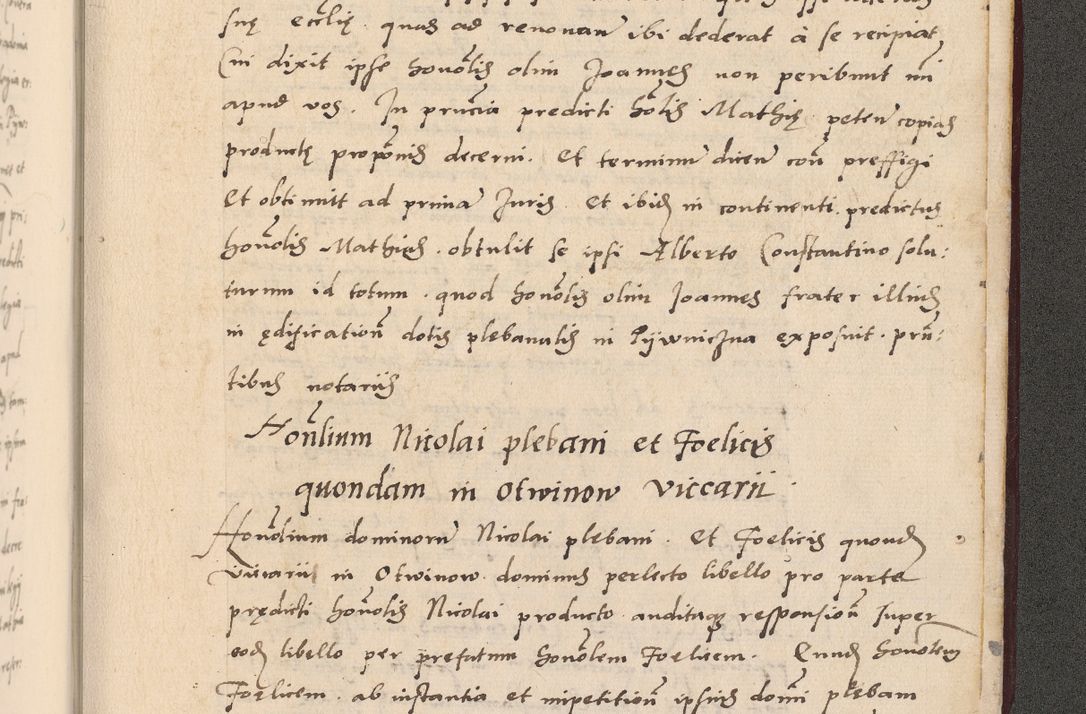 suę eccłię. quas ad renouan̄ ibi dederat à se recipiat,
Cui dixit ipse honołis olim Joannes non peribunt mi
apud vos. In prn̄cia predicti hołis Mathię peten̄ copias
productę propōnis decerni. Et terminū dicen̄ con̄ preffigi
Et obtinuit ad primā Juris. et ibid in continenti predictus
honołis Mathias. obtulit se ipsi Alberto Constantino solu:
turum id totum. quod honołis olim Joannes frater illius
in ędificationē dotis plebanalis in Piiwniczna exposuit. prn̄:
tibus notariis
Honłium Nicolai plebani et Foelicis
quondam in Otwinow viccarii
Honołium dominorū Nicolai plebani. Et Foelicis quond
viccarii in Otwinow. dominus perlecto libello pro parte
prędicti honołis Nicolai producto auditaque responsionē super
eod libello per prefatum honołem Foelicem. Eund honołem
Foelicem. ab instantia et impetitionē ipsius domī plebani